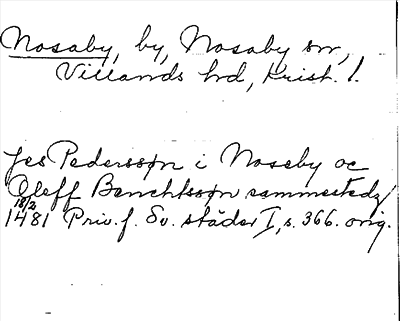 Nosaby, by, Nosaby sn,
Villands hd, Krist. l.
Jes Pederssøn i Noseby oc
Oleff Benchtsøn sammestedz
18/2
1481 Priv. f. Sv. städer I, s. 366. orig.